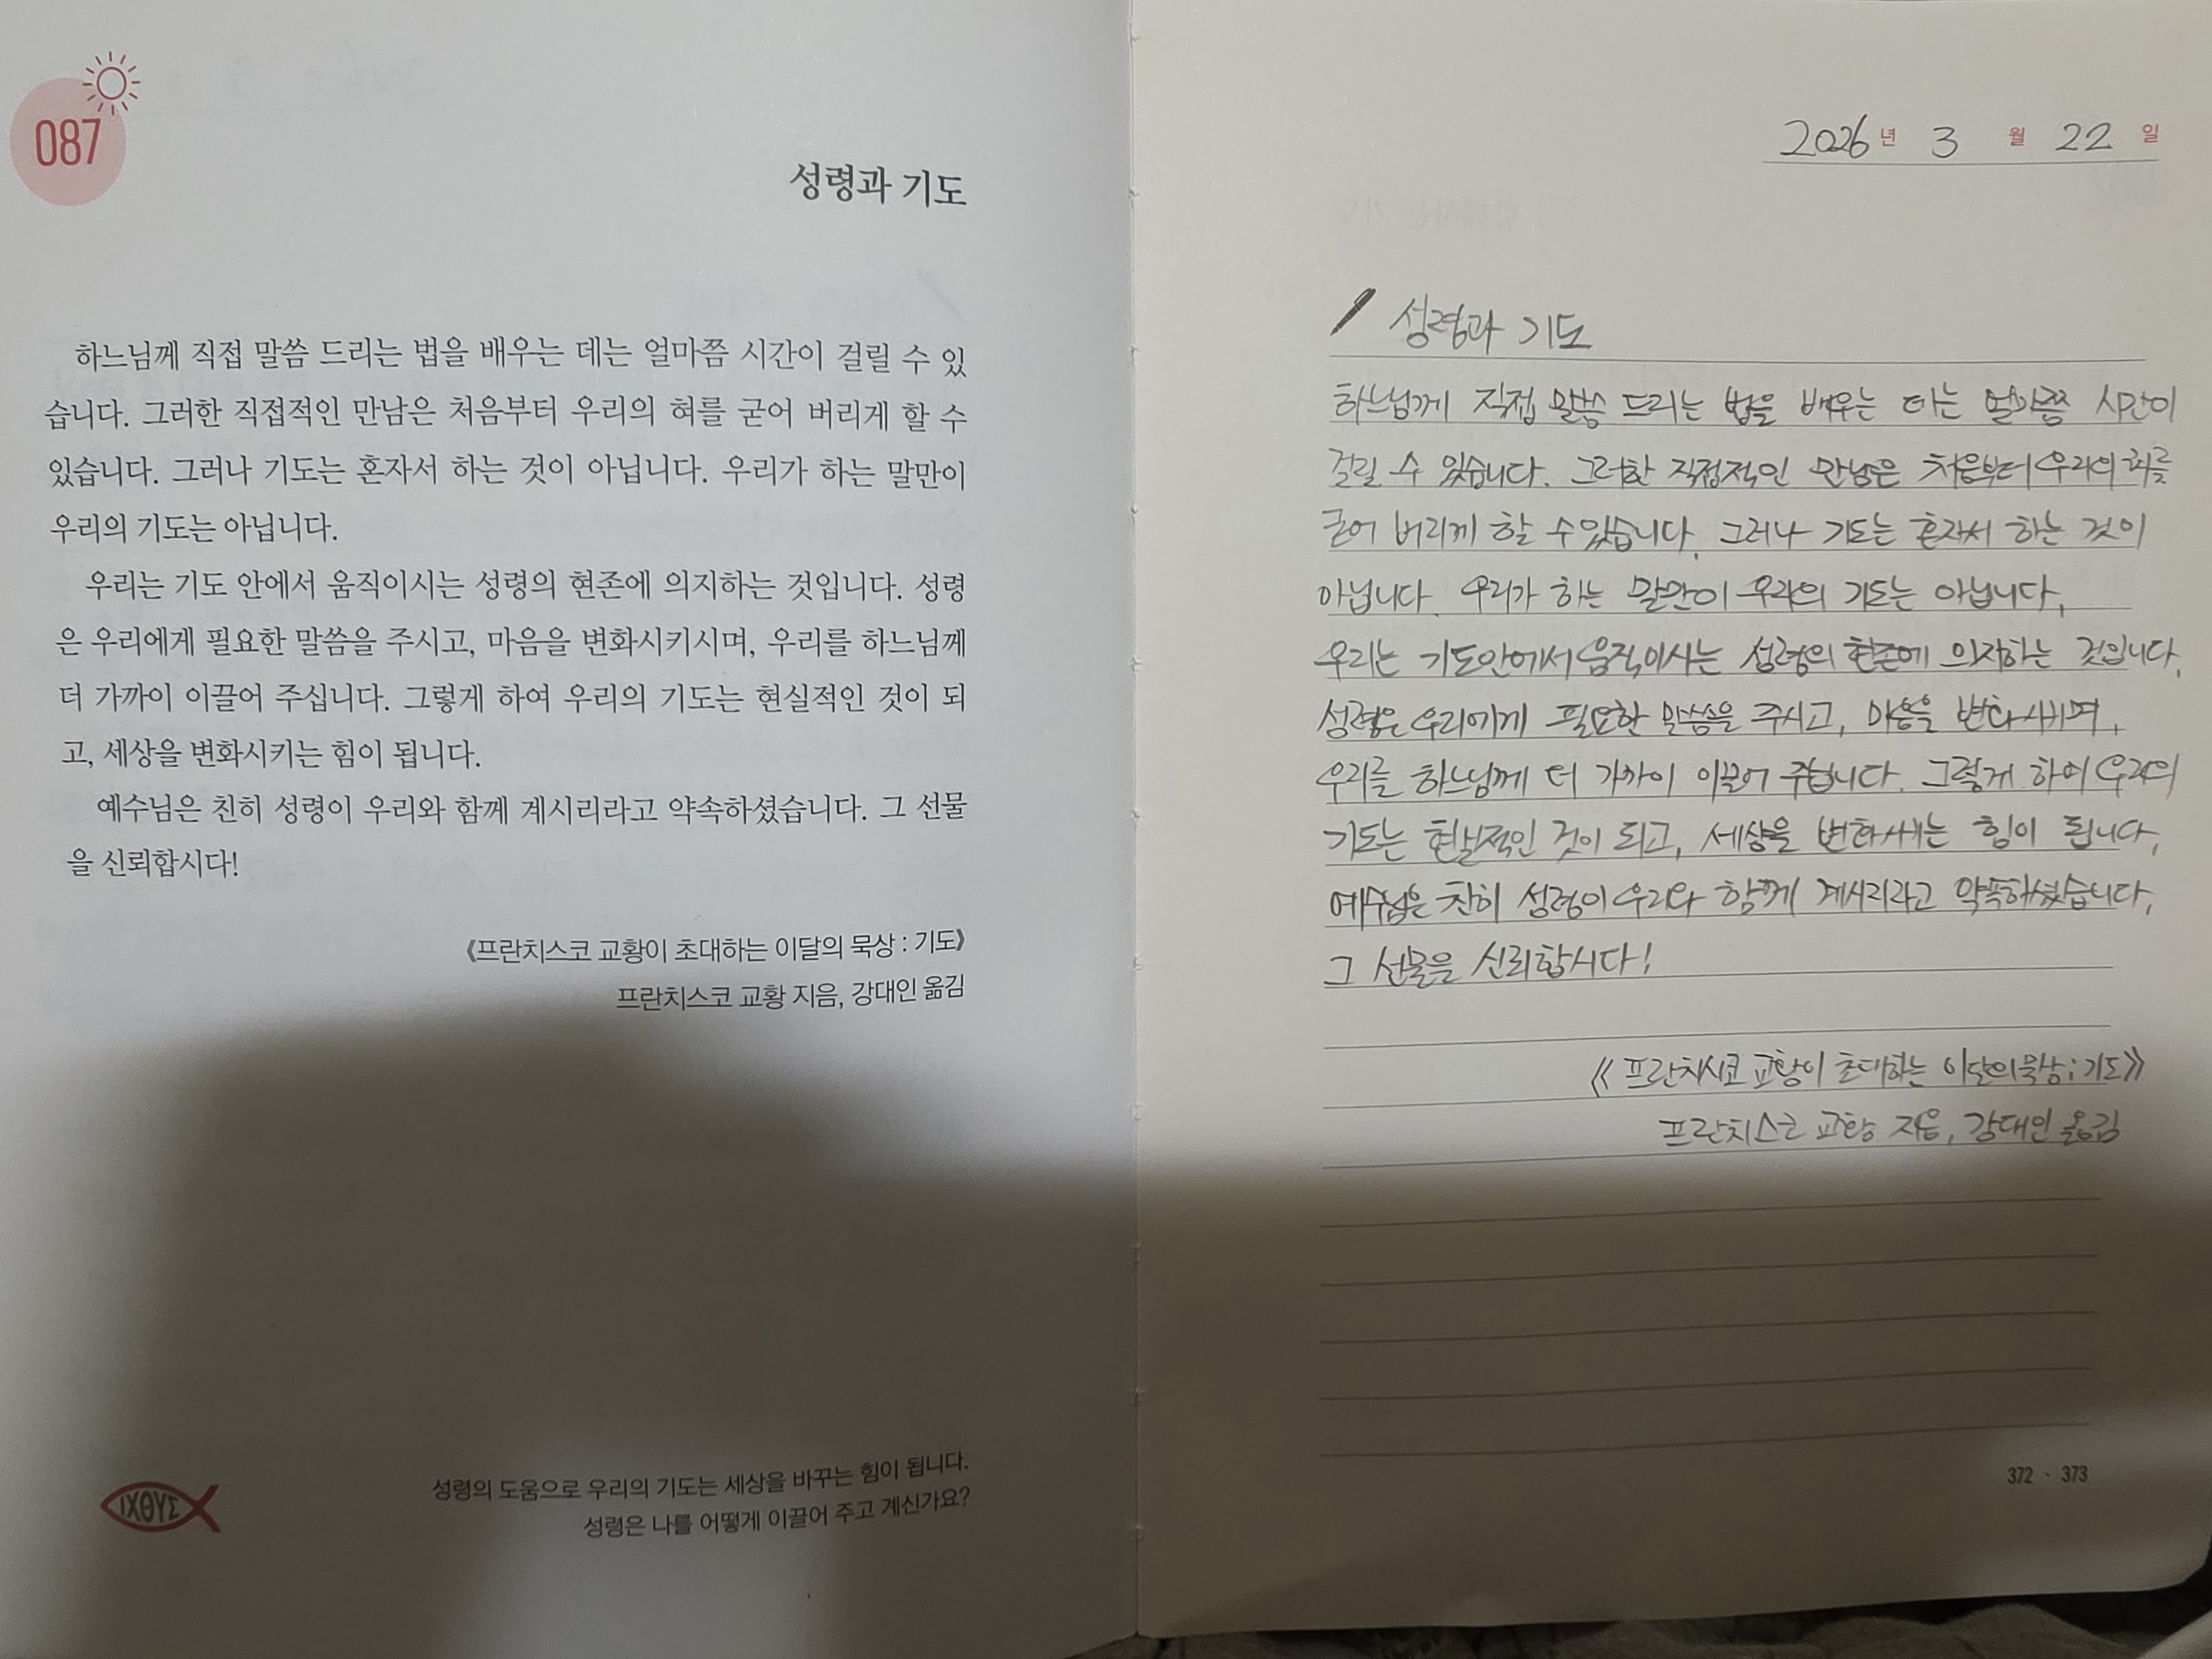 087
성령과 기도
하느님께 직접 말씀 드리는 법을 배우는 데는 얼마쯤 시간이 걸릴 수 있
습니다. 그러한 직접적인 만남은 처음부터 우리의 혀를 굳어 버리게 할 수
있습니다. 그러나 기도는 혼자서 하는 것이 아닙니다. 우리가 하는 말만이
우리의 기도는 아닙니다.
우리는 기도 안에서 움직이시는 성령의 현존에 의지하는 것입니다. 성령
은 우리에게 필요한 말씀을 주시고, 마음을 변화시키시며, 우리를 하느님께
더 가까이 이끌어 주십니다. 그렇게 하여 우리의 기도는 현실적인 것이 되
고, 세상을 변화시키는 힘이 됩니다.
예수님은 친히 성령이 우리와 함께 계시리라고 약속하셨습니다. 그 선물
을 신뢰합시다!
《프란치스코 교황이 초대하는 이달의 묵상 : 기도》
프란치스코 교황 지음, 강대인 옮김
ΙΧΘΥΣ
성령의 도움으로 우리의 기도는 세상을 바꾸는 힘이 됩니다.
성령은 나를 어떻게 이끌어 주고 계신가요?
2026년 3월 22일
성령과 기도
하느님께 직접 말씀 드리는 법을 배우는 데는 얼마쯤 시간이
걸릴 수 있습니다. 그러한 직접적인 만남은 처음부터 우리의 혀를
굳어 버리게 할 수 있습니다. 그러나 기도는 혼자서 하는 것이
아닙니다. 우리가 하는 말만이 우리의 기도는 아닙니다.
우리는 기도안에서 움직이시는 성령의 현존에 의지하는 것입니다.
성령은 우리에게 필요한 말씀을 주시고, 마음을 변화시키며,
우리를 하느님께 더 가까이 이끌어 주십니다. 그렇게 하여 우리의
기도는 현실적인 것이 되고, 세상을 변화시키는 힘이 됩니다.
예수님은 친히 성령이 우리와 함께 계시리라고 약속하셨습니다.
그 선물을 신뢰합시다!
《프란치시코 교황이 초대하는 이달의 묵상 : 기도》
프란치스코 교황 지음, 강대인 옮김
372 · 373